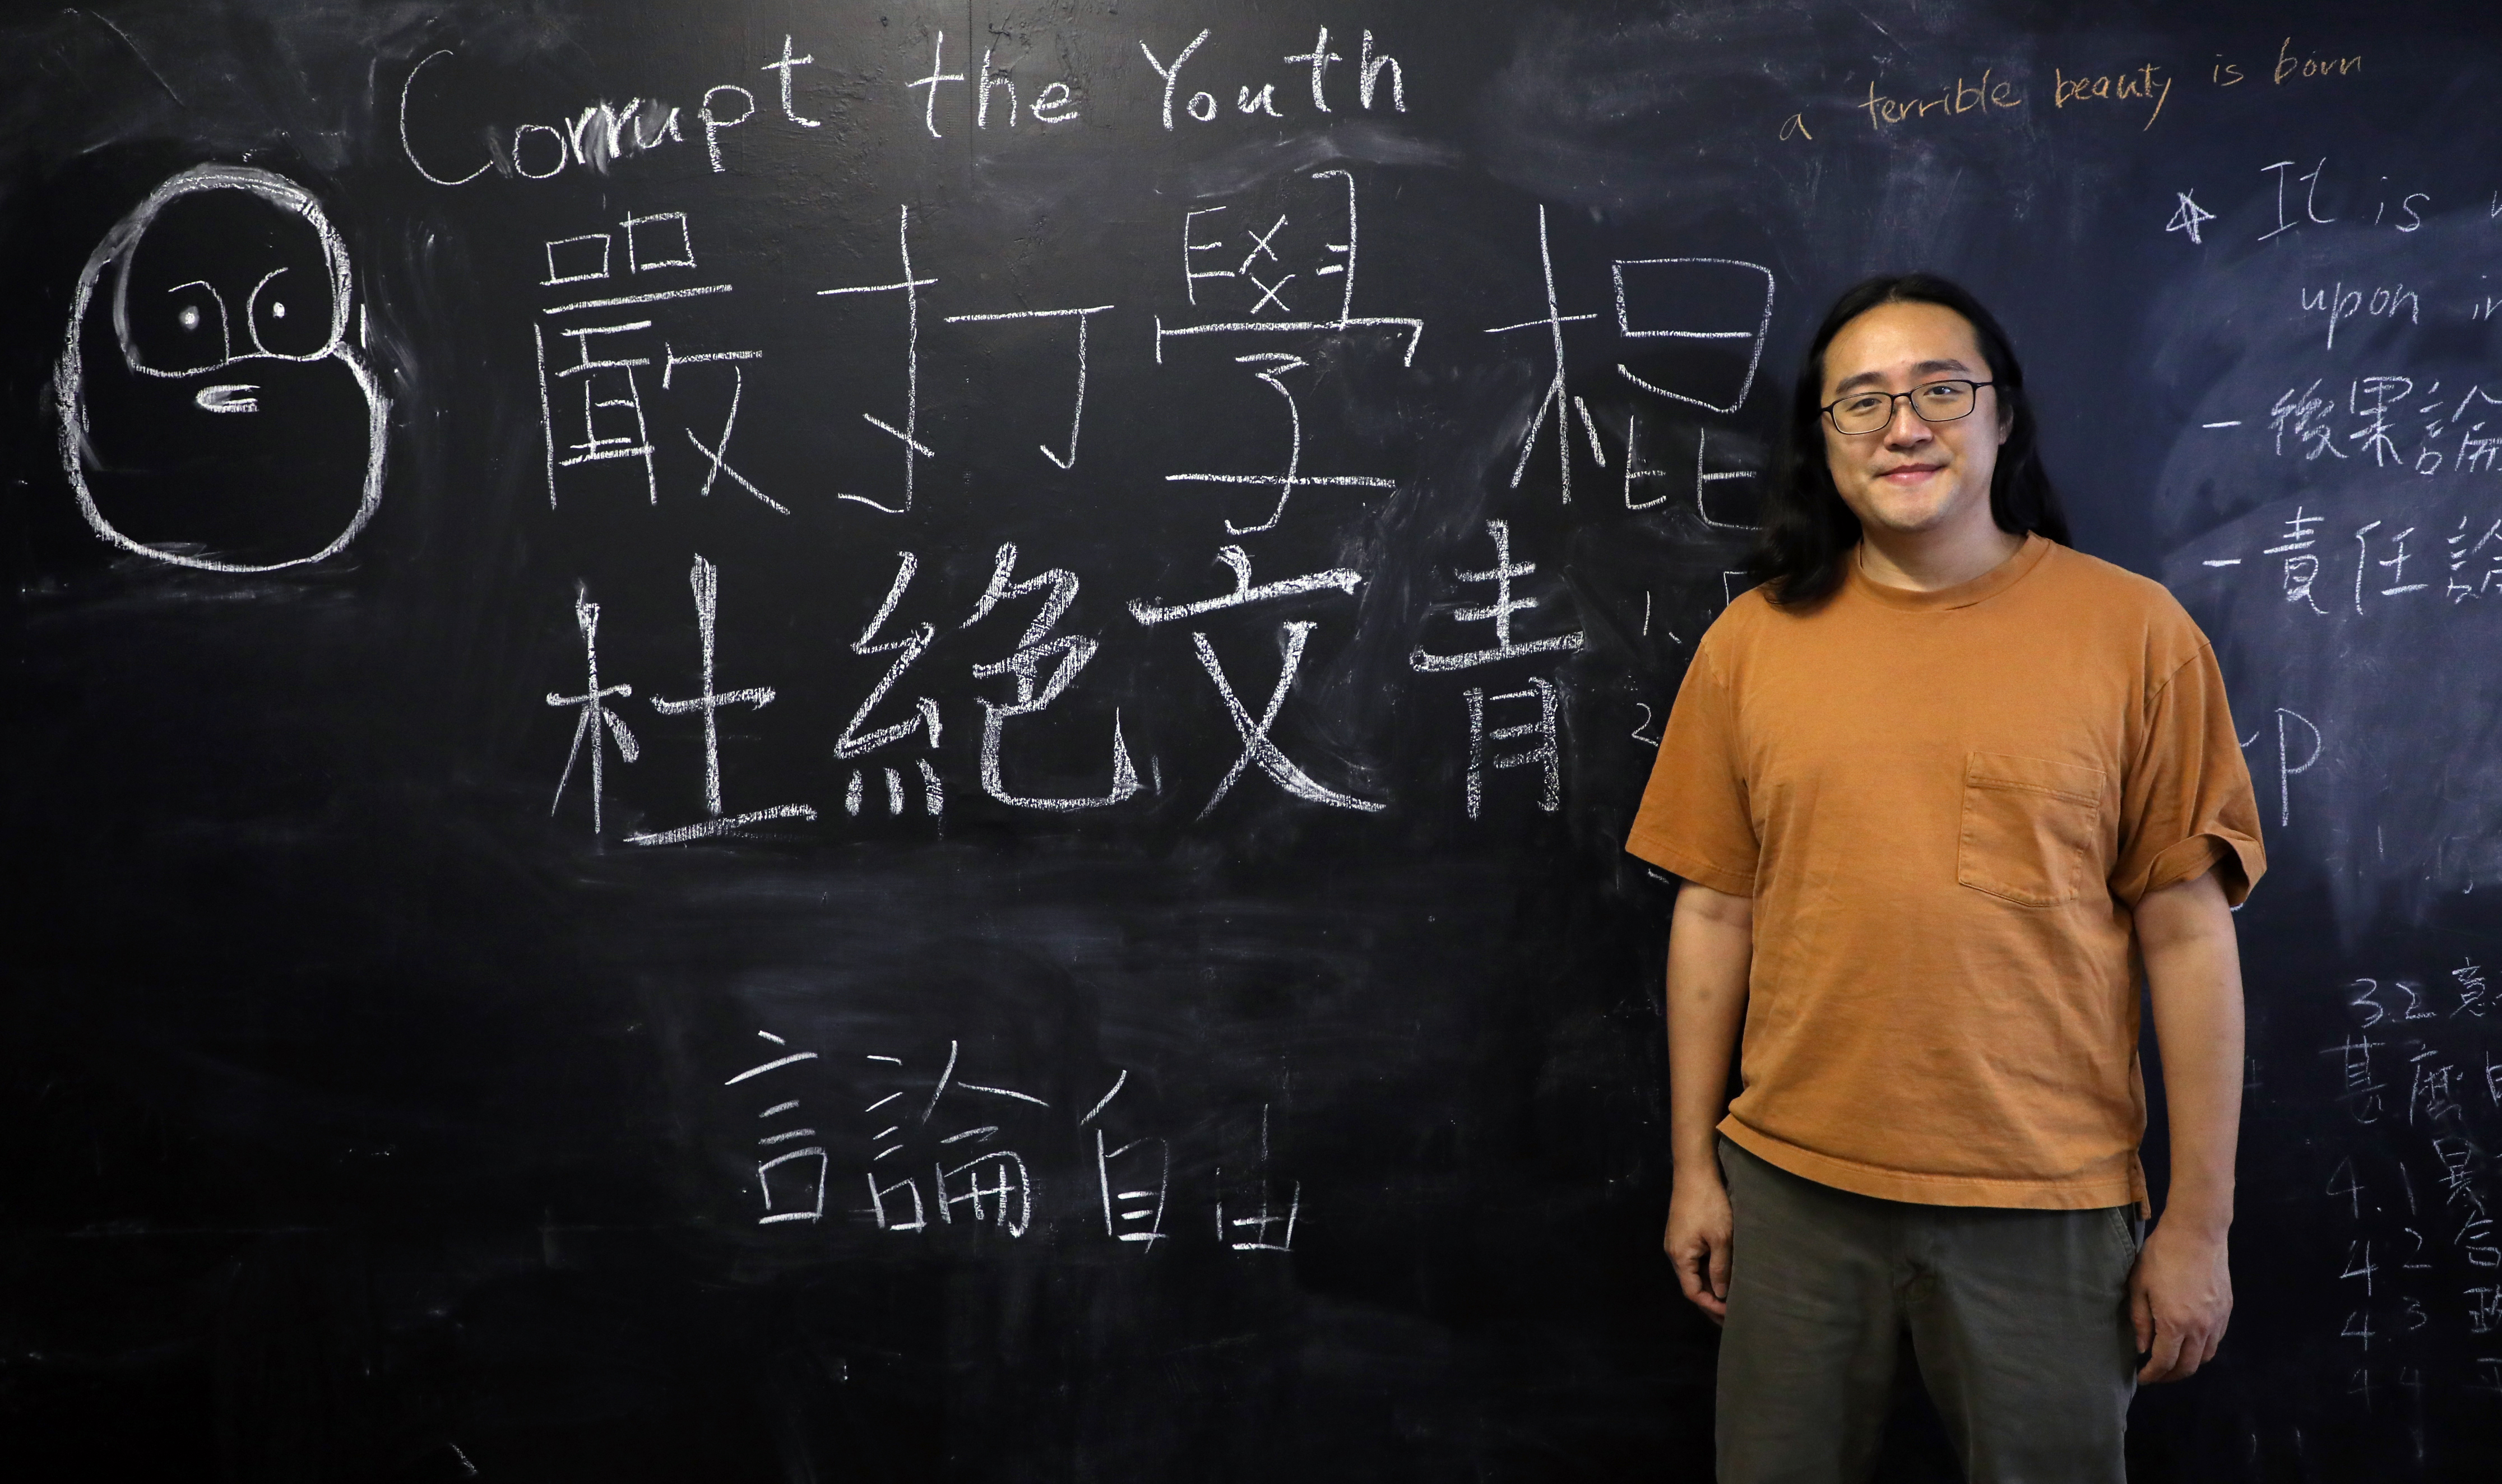 Corrupt the Youth
a terrible beauty is born
嚴打學棍
杜絕文青
言論自由
It is
upon
- 後果論
- 責任論
1.
2
~P
3.2 意
甚麼
4.1
4.2
4.3
4.4